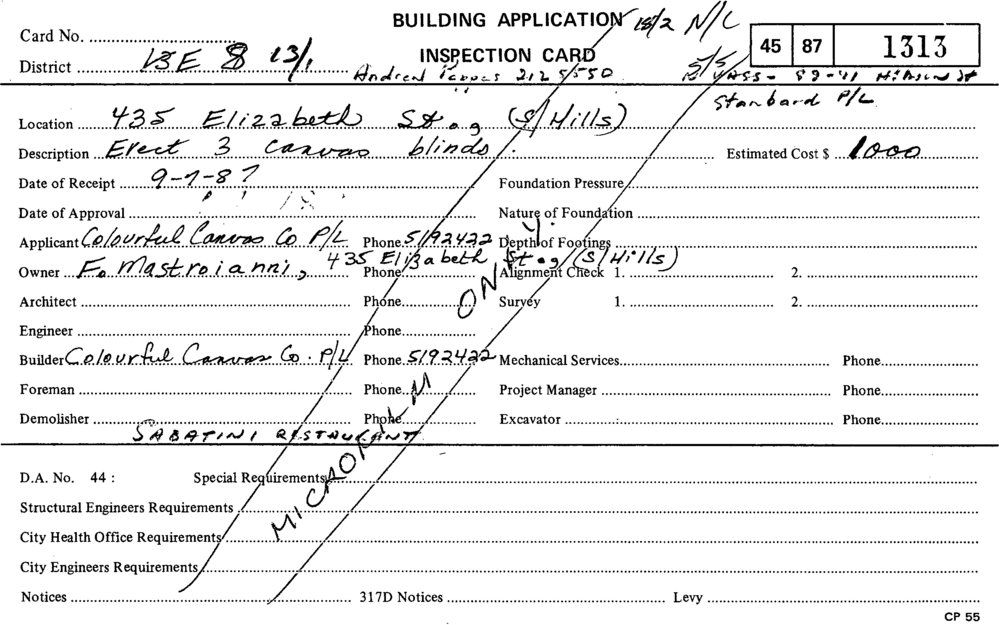 BUILDING APPLICATION 18/2 N/C
Card No.
INSPECTION CARD
45 87 1313
District BE 8 13/1
Andrew Pappas 2125550
5/5 82-91
Stanbard P/L
Location 435 Elizabeth St. (S/Hills)
Description Erect 3 canvas blinds. Estimated Cost $ 1000
Date of Receipt 9-7-87 Foundation Pressure
Date of Approval Nature of Foundation
Applicant Colourful Canvas Co P/L Phone 5192422 Depth of Footings
Owner F. Mastroianni, 435 Elizabeth St. (S/Hills) Phone Alignment Check 1. 2.
Architect Phone Survey 1. 2.
Engineer Phone
Builder Colourful Canvas Co. P/L Phone 5192422 Mechanical Services Phone
Foreman Phone Project Manager Phone
Demolisher Phone Excavator Phone
SABATINI RESTAURANT
D.A. No. 44 : Special Requirements
Structural Engineers Requirements
City Health Office Requirements
City Engineers Requirements
Notices 317D Notices Levy
CP 55
MICROFILM ONLY.